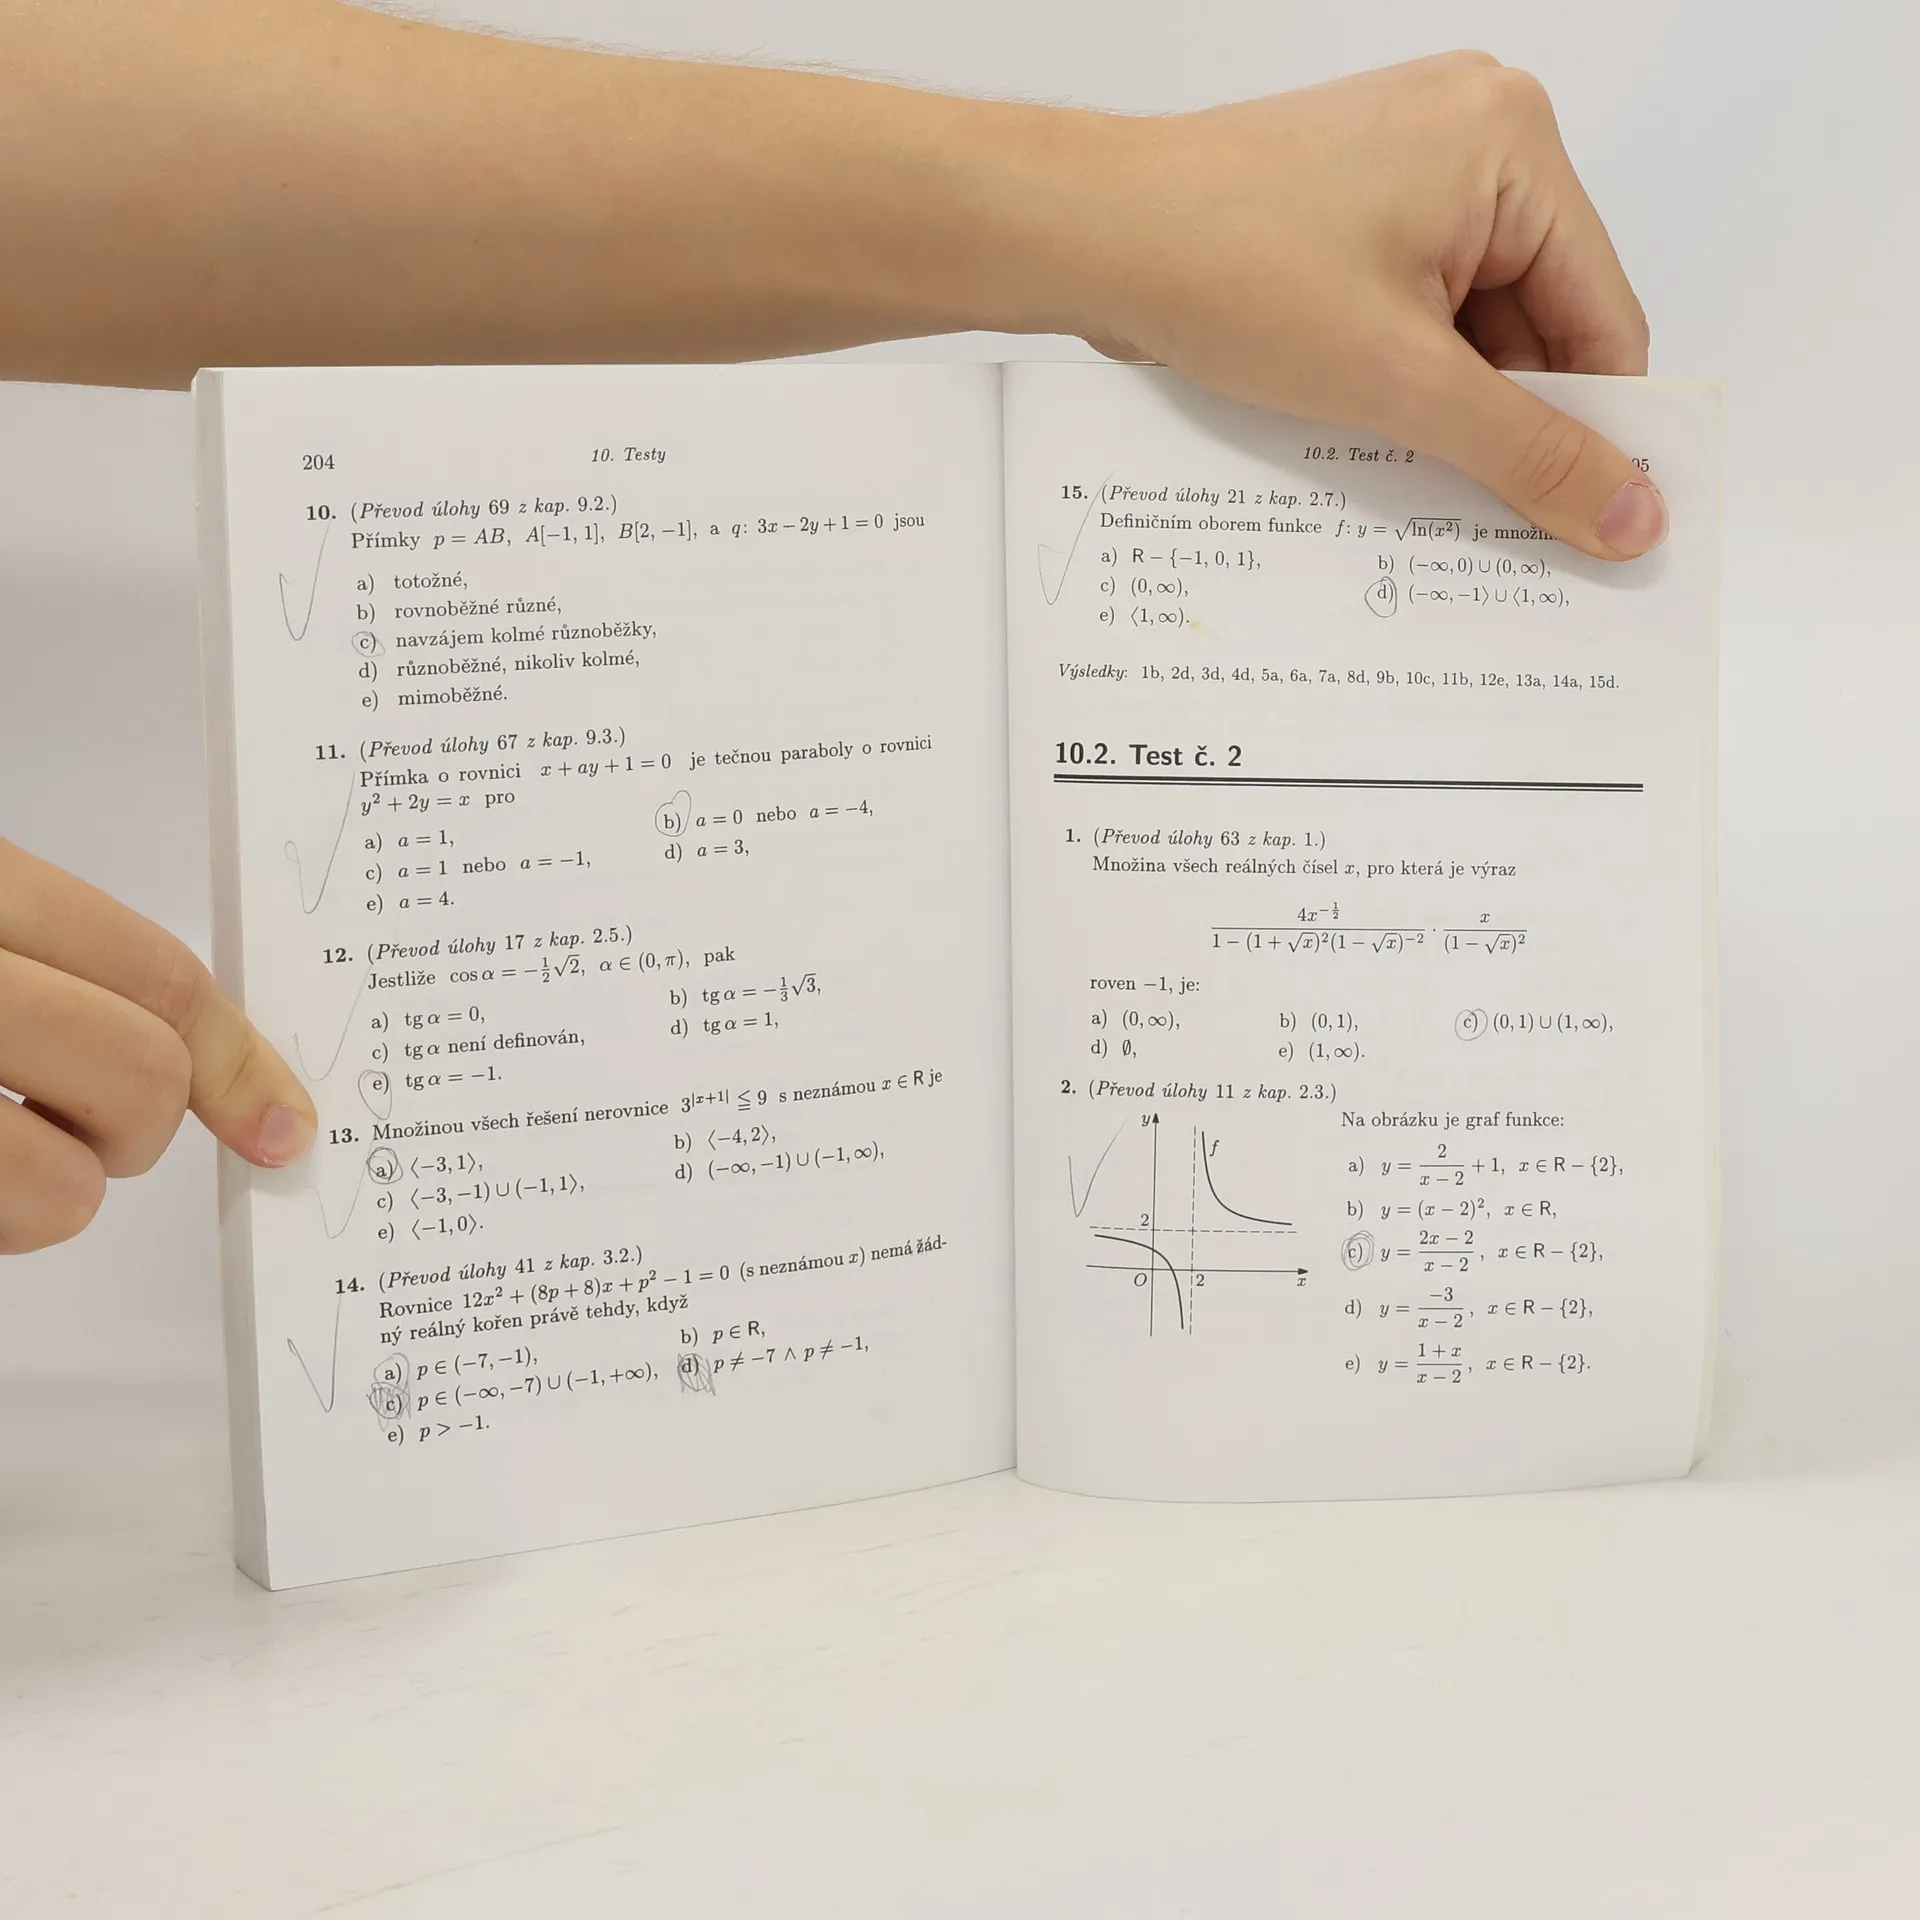 204
10. Testy
10. (Převod úlohy 69 z kap. 9.2.)
Přímky p = AB, A[−1, 1], B[2, −1], a q: 3x − 2y + 1 = 0 jsou
a) totožné,
b) rovnoběžné různé,
c) navzájem kolmé různoběžky,
d) různoběžné, nikoliv kolmé,
e) mimoběžné.
11. (Převod úlohy 67 z kap. 9.3.)
Přímka o rovnici x + ay + 1 = 0 je tečnou paraboly o rovnici
y² + 2y = x pro
a) a = 1,
b) a = 0 nebo a = −4,
c) a = 1 nebo a = −1,
d) a = 3,
e) a = 4.
12. (Převod úlohy 17 z kap. 2.5.)
Jestliže cos α = −½√2, α ∈ (0, π), pak
a) tg α = 0,
b) tg α = −⅓√3,
c) tg α není definován,
d) tg α = 1,
e) tg α = −1.
13. Množinou všech řešení nerovnice 3^|x+1| ≦ 9 s neznámou x ∈ R je
a) ⟨−3, 1⟩,
b) ⟨−4, 2⟩,
c) ⟨−3, −1) ∪ (−1, 1⟩,
d) (−∞, −1) ∪ (−1, ∞),
e) ⟨−1, 0⟩.
14. (Převod úlohy 41 z kap. 3.2.)
Rovnice 12x² + (8p + 8)x + p² − 1 = 0 (s neznámou x) nemá žád-
ný reálný kořen právě tehdy, když
a) p ∈ (−7, −1),
b) p ∈ R,
c) p ∈ (−∞, −7) ∪ (−1, +∞),
d) p ≠ −7 ∧ p ≠ −1,
e) p > −1.
10.2. Test č. 2
15. (Převod úlohy 21 z kap. 2.7.)
Definičním oborem funkce f: y = √ln(x²) je
a) R − {−1, 0, 1},
b) (−∞, 0) ∪ (0, ∞),
c) (0, ∞),
d) (−∞, −1⟩ ∪ ⟨1, ∞),
e) ⟨1, ∞).
Výsledky: 1b, 2d, 3d, 4d, 5a, 6a, 7a, 8d, 9b, 10c, 11b, 12e, 13a, 14a, 15d.
10.2. Test č. 2
1. (Převod úlohy 63 z kap. 1.)
Množina všech reálných čísel x, pro která je výraz
4x^(−1/2) / (1 − (1 + √x)²(1 − √x)^−2) · x / (1 − √x)²
roven −1, je:
a) (0, ∞),
b) (0, 1),
c) (0, 1) ∪ (1, ∞),
d) ∅,
e) (1, ∞).
2. (Převod úlohy 11 z kap. 2.3.)
y
f
2
O
2
x
Na obrázku je graf funkce:
a) y = 2/(x − 2) + 1, x ∈ R − {2},
b) y = (x − 2)², x ∈ R,
c) y = (2x − 2)/(x − 2), x ∈ R − {2},
d) y = −3/(x − 2), x ∈ R − {2},
e) y = (1 + x)/(x − 2), x ∈ R − {2}.